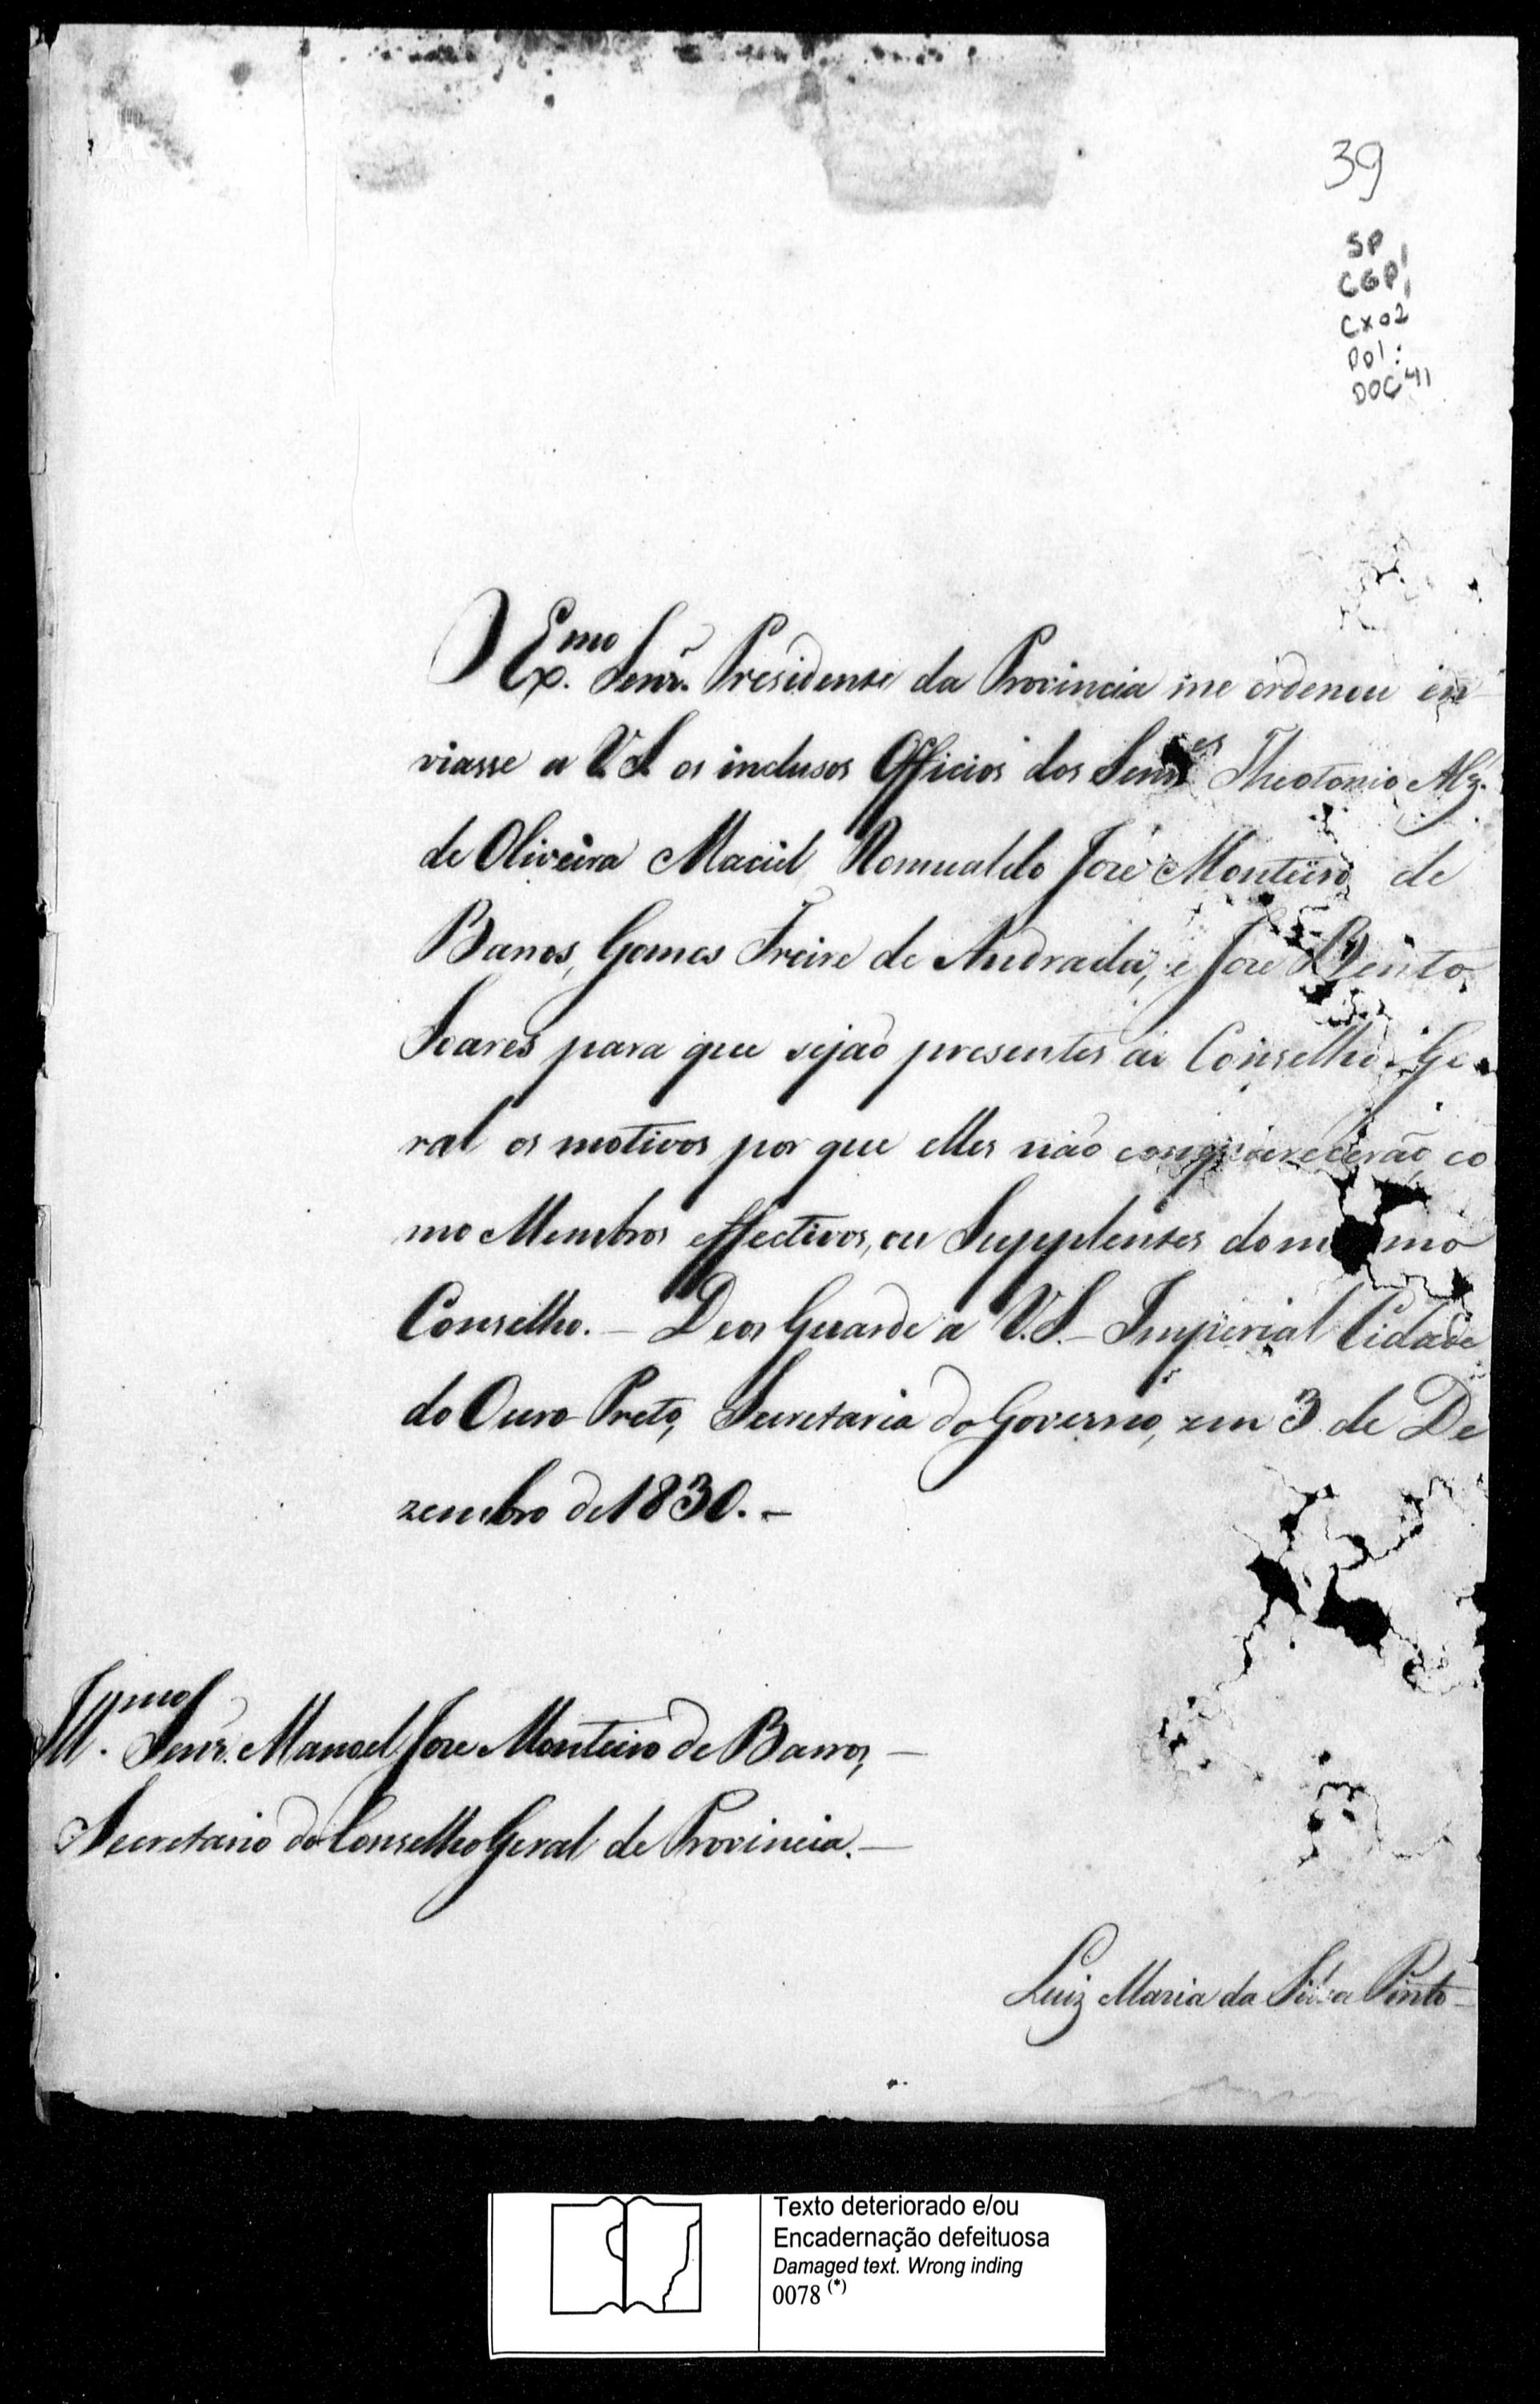 39
SP
CGP1
Cx02
D01:
DOC 41
O Exmo. Senr. Presidente da Provincia me ordenou en
viasse a V. S. os inclusos Officios dos Senres Theotonio Alz.
de Oliveira Maciel, Romualdo José Monteiro de
Barros, Gomes Freire de Andrada, e José Bento
Soares para que sejão presentes ao Conselho Ge
ral os motivos por que elles não comparecerão co
mo Membros effectivos, ou Supplentes do mesmo
Conselho. - Deos Guarde a V. S. - Imperial Cidade
do Ouro Preto, Secretaria do Governo, em 3 de De
zembro de 1830. -
Illmo. Senr. Manoel José Monteiro de Barros, -
Secretario do Conselho Geral de Provincia. -
Luiz Maria da Silva Pinto
Texto deteriorado e/ou
Encadernação defeituosa
Damaged text. Wrong inding
0078 (*)